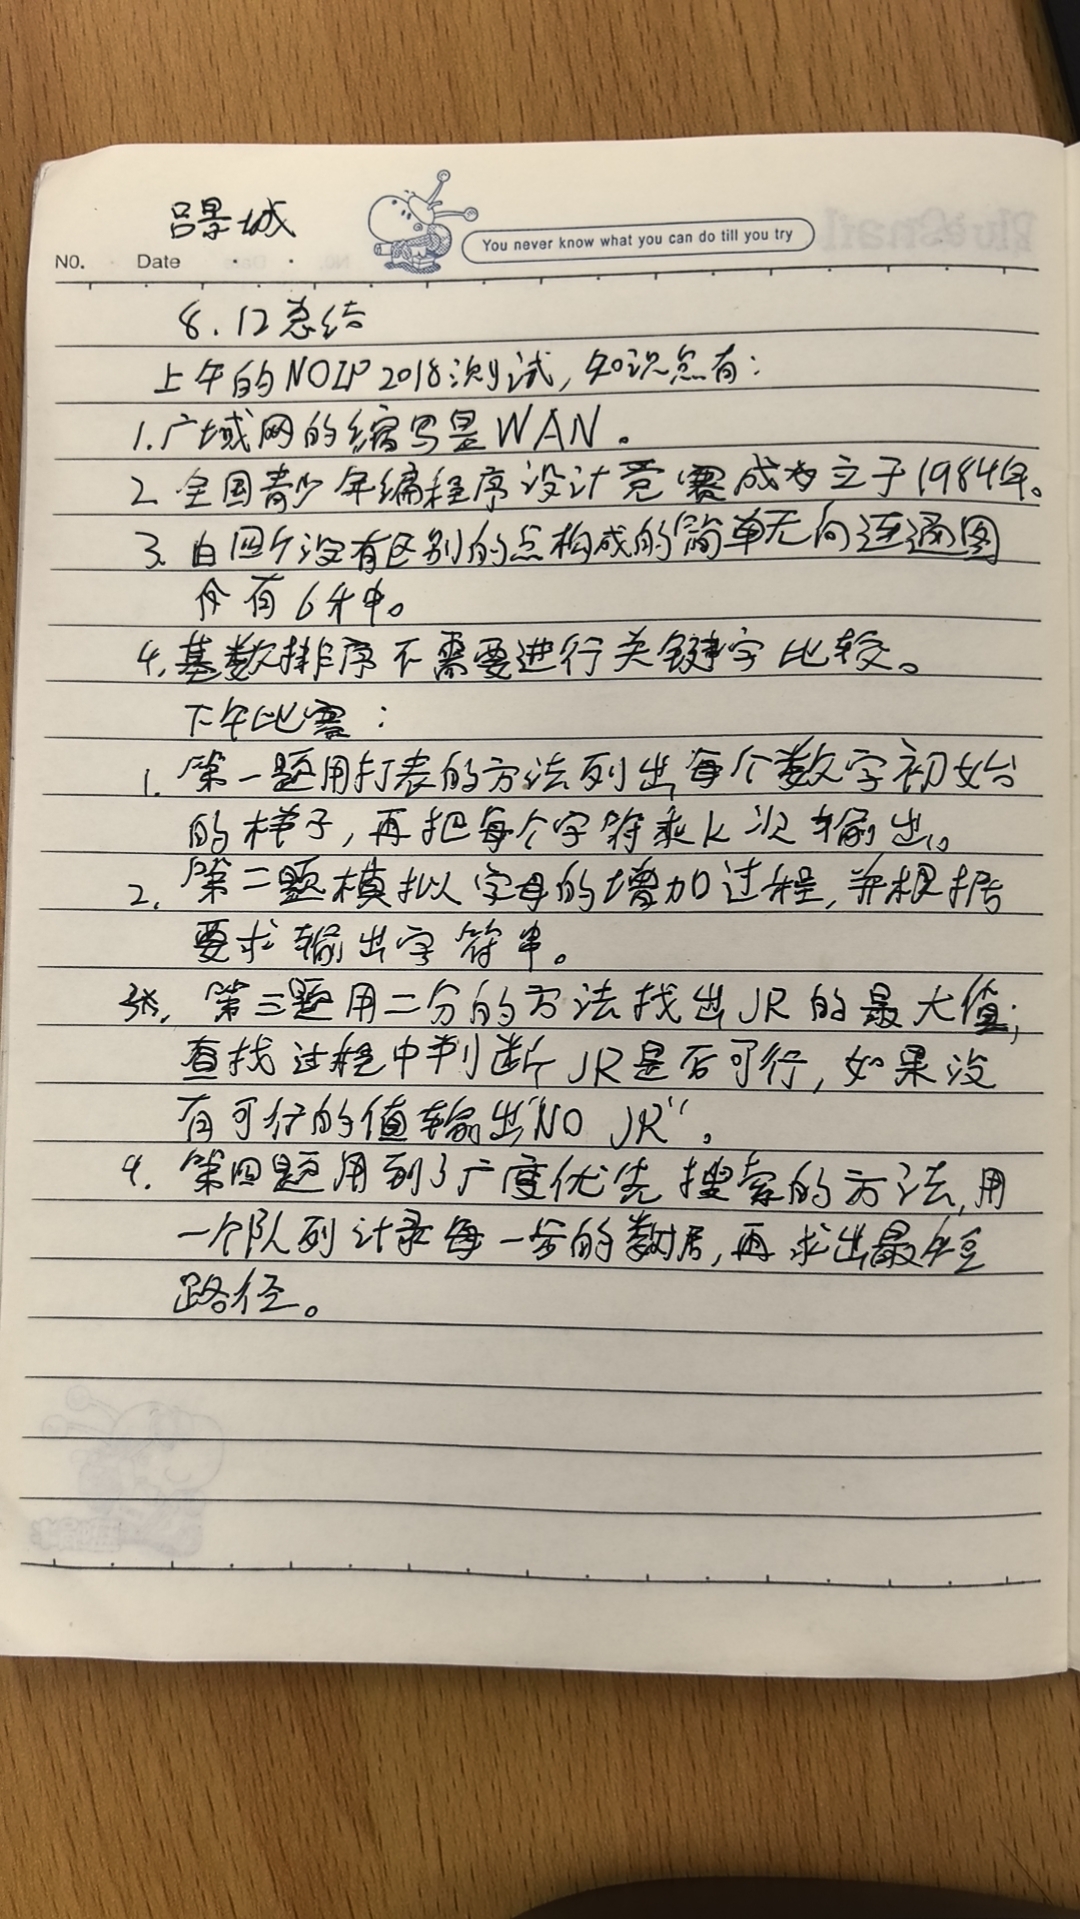 吕景城
You never know what you can do till you try
NO. Date
8.12总结
上午的NOIP2018测试,知识点有:
1.广域网的缩写是WAN。
2.全国青少年编程序设计竞赛成为立于1984年。
3.由四个没有区别的点构成的简单无向连通图
个有6种。
4.基数排序不需要进行关键字比较。
下午比赛:
1.第一题用打表的方法列出每个数字初始
的样子,再把每个字符乘k次输出。
2.第二题模拟字母的增加过程,并根据
要求输出字符串。
3.第三题用二分的方法找出JR的最大值;
查找过程中判断JR是否可行,如果没
有可行的值输出"NO JR"。
4.第四题用到了广度优先搜索的方法,用
一个队列计录每一步的数据,再求出最短
路径。